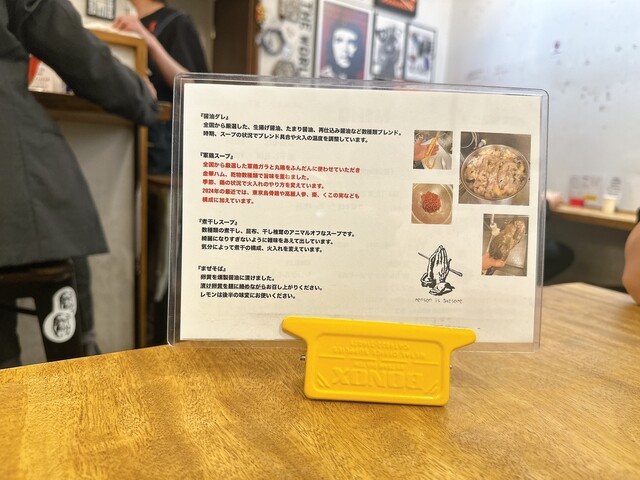 『醤油ダレ』
全国から厳選した、生揚げ醤油、たまり醤油、再仕込み醤油など数種類ブレンド。
時期、スープの状況でブレンド具合や火入の温度を調整しています。
『軍鶏スープ』
全国から厳選した軍鶏ガラと丸鶏をふんだんに使わせていただき
金華ハム、乾物数種類で旨味を重ねました。
季節、鶏の状況で火入れのやり方を変えています。
2024年の最近では、東京烏骨鶏や高麗人参、棗、くこの実なども
構成に加えています。
『煮干しスープ』
数種類の煮干し、昆布、干し椎茸のアニマルオフなスープです。
綺麗になりすぎないように雑味をあえて出しています。
気分によって煮干の構成、火入れを変えています。
『まぜそば』
卵黄を燻製醤油に漬けました。
漬け卵黄を麺に絡めながらお召し上がりください。
レモンは後半の味変にお使いください。
ramen is awesome
BONOX